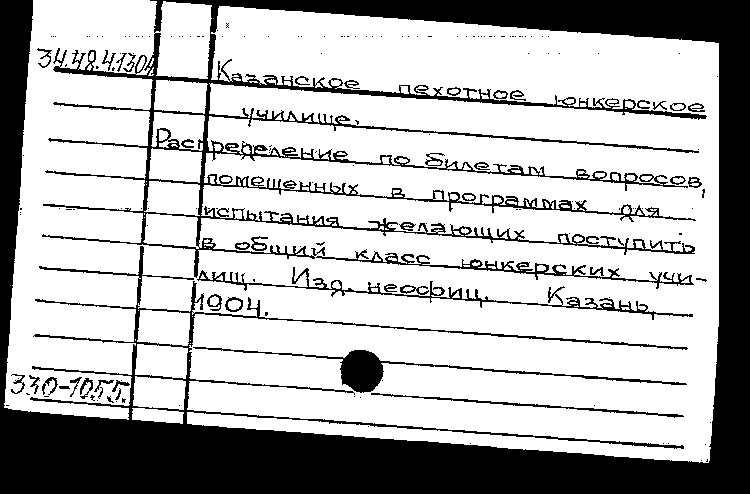 34.48.4.1304
Казанское пехотное юнкерское
училище.
Распределение по билетам вопросов,
помещенных в программах для
испытания желающих поступить
в общий класс юнкерских учи-
лищ. Изд. неофиц. Казань,
1904.
330-1055.